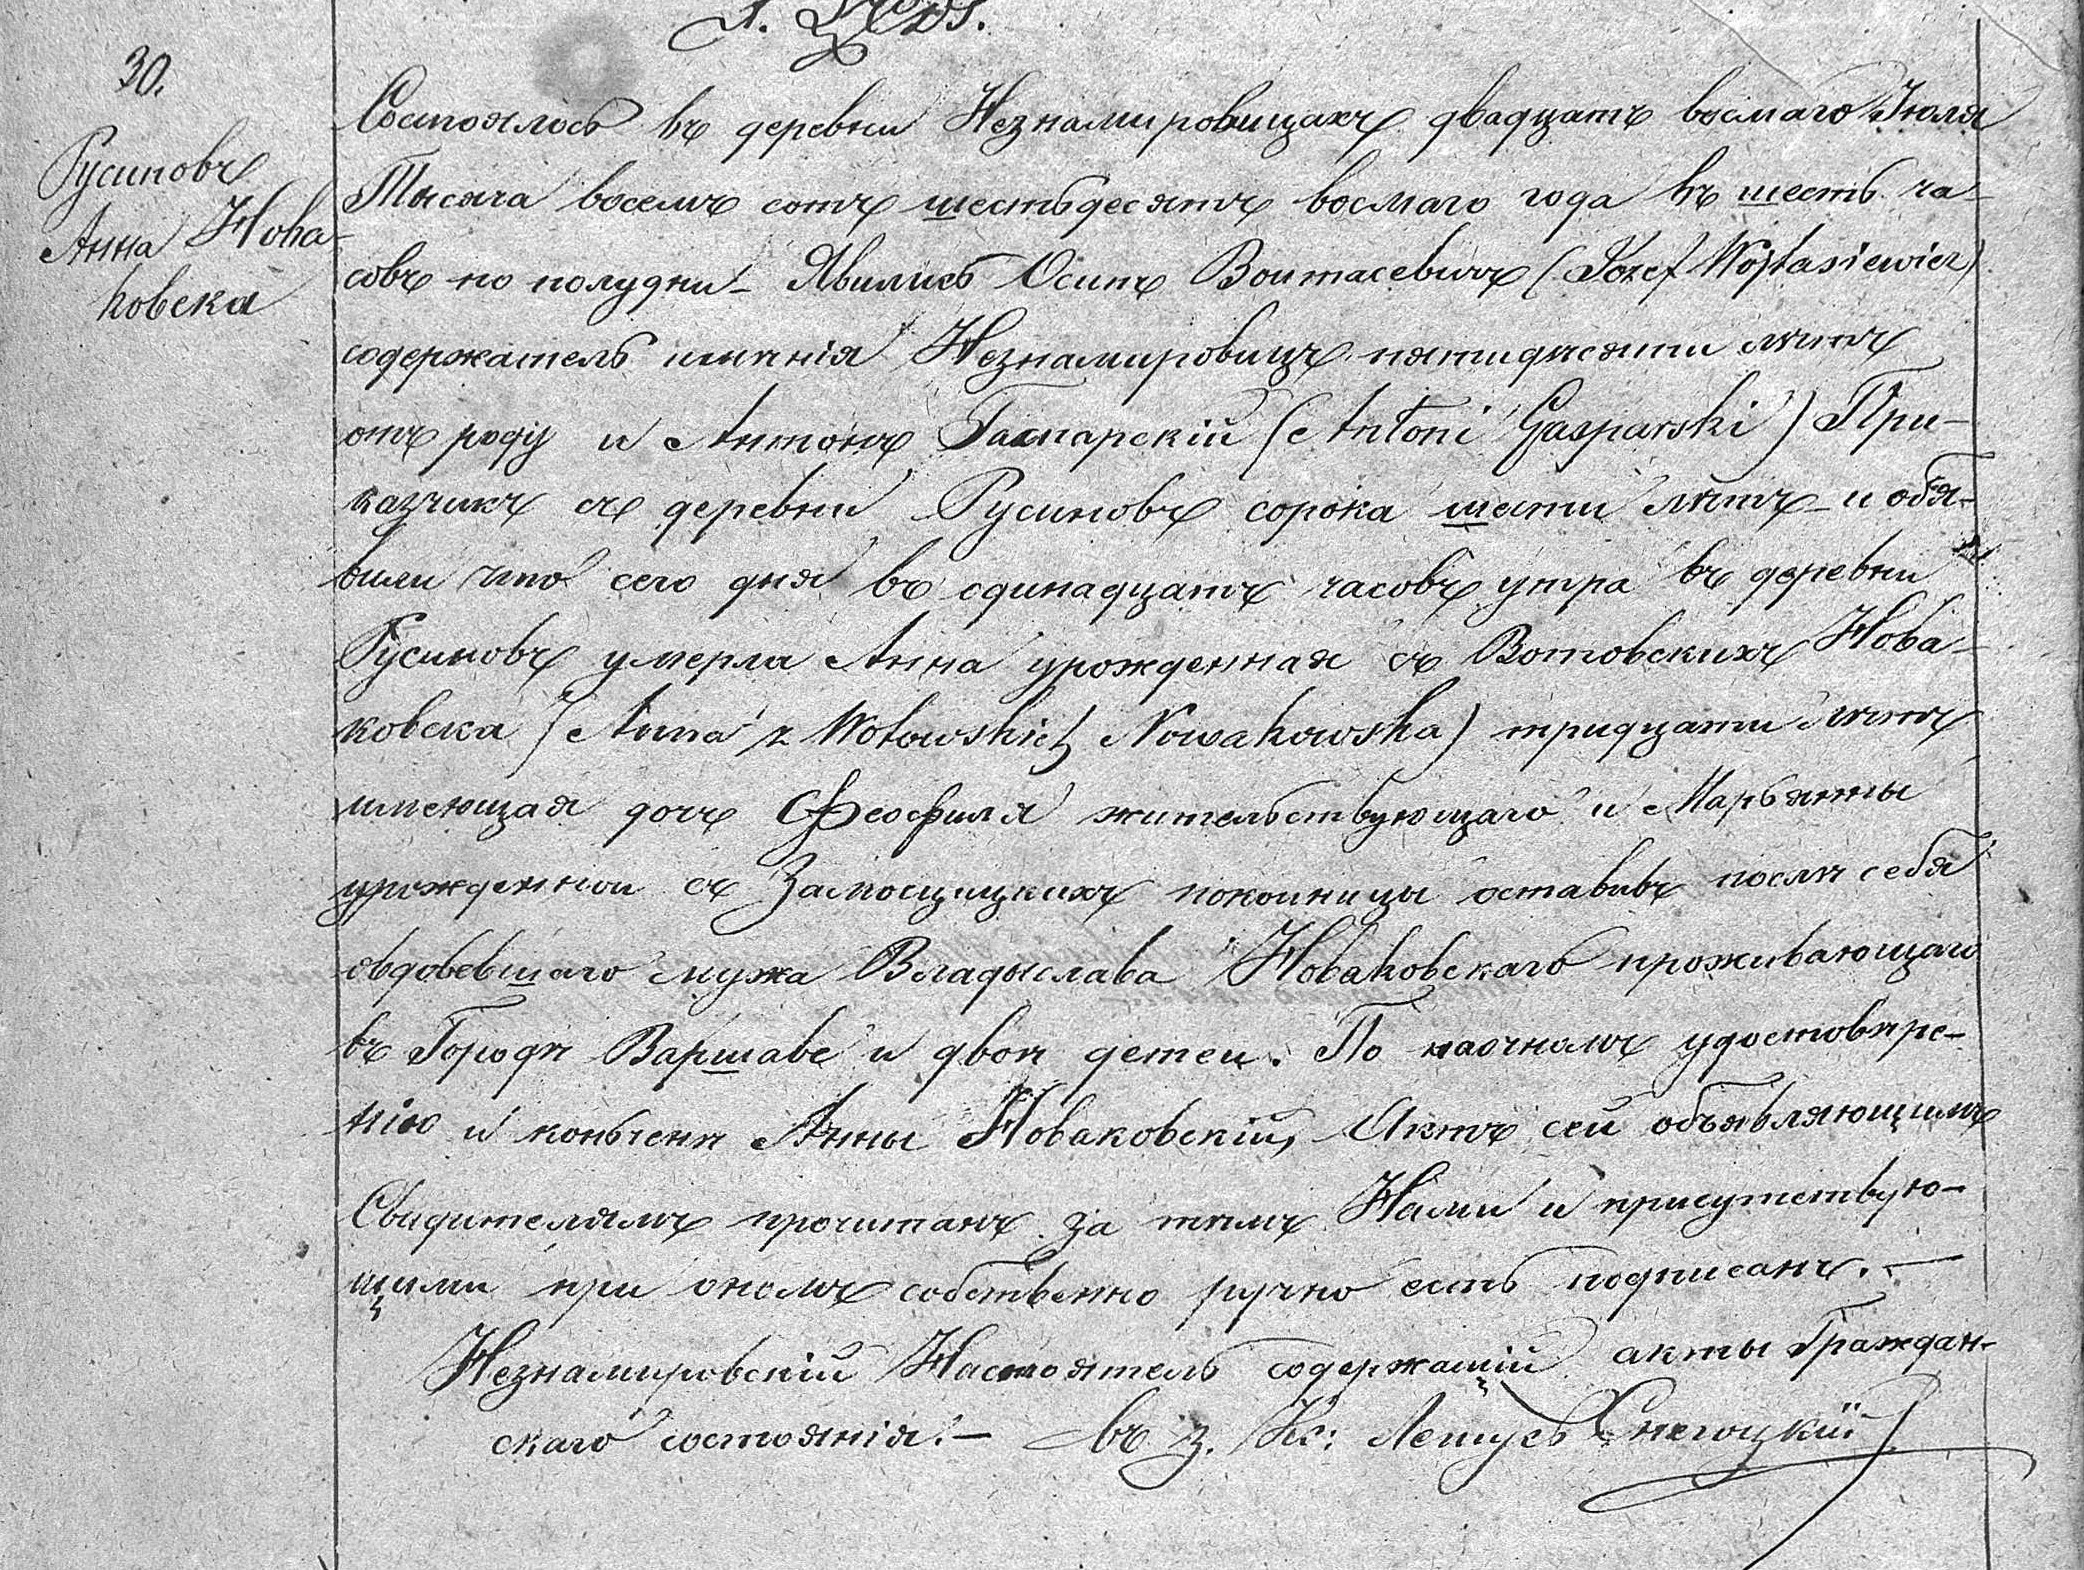 30.
Русиновъ
Анна Нова-
ковска
Состоялось въ деревни Незнамировицахъ двадцать восмаго Іюля
Тысяча восемъ сотъ шестьдесятъ восмаго года въ шесть ча-
совъ по полудни – Явились Осипъ Воитасевичъ (Józef Wójtasiewicz)
содержатель имѣнія Незнамировицъ пятидѣсяти лѣтъ
отъ роду и Антонъ Гаспарскій (Antoni Gasparski) При-
казчикъ съ деревни Русиновъ сорока шести лѣтъ – и обѣя-
вили что сего дня въ единадцать часовъ утра въ деревни
Русиновъ умерла Анна урожденная съ Вотовскихъ Нова-
ковска (Anna z Wotowskich Nowakowska) тридцати лѣтъ
имеющая дочь Феофиля жительствующаго и Марьянны
урожденнои съ Замосцицкихъ покоиницы оставивъ послѣ себя
овдовевшаго мужа Владыслава Новаковскаго проживающаго
въ Городѣ Варшаве и двои детеи. По наочномъ удостовѣре-
нію и коньченѣ Анны Новаковскій, Актъ сеи объявляющимъ
Свидителямъ прочитанъ за тѣмъ Нами и присутствую-
щими при ономъ собственно ручно есть подписанъ. –
Незнамировскій Настоятель содержащій акты Граждан-
скаго состоянія. – въ з. Кс: